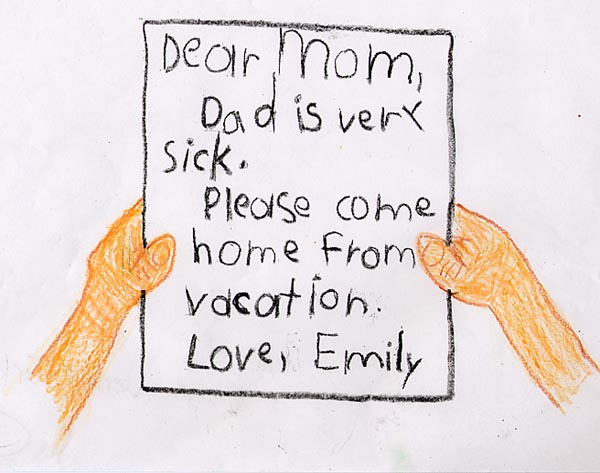 Dear Mom,
Dad is very
sick.
Please come
home from
vacation.
Love, Emily